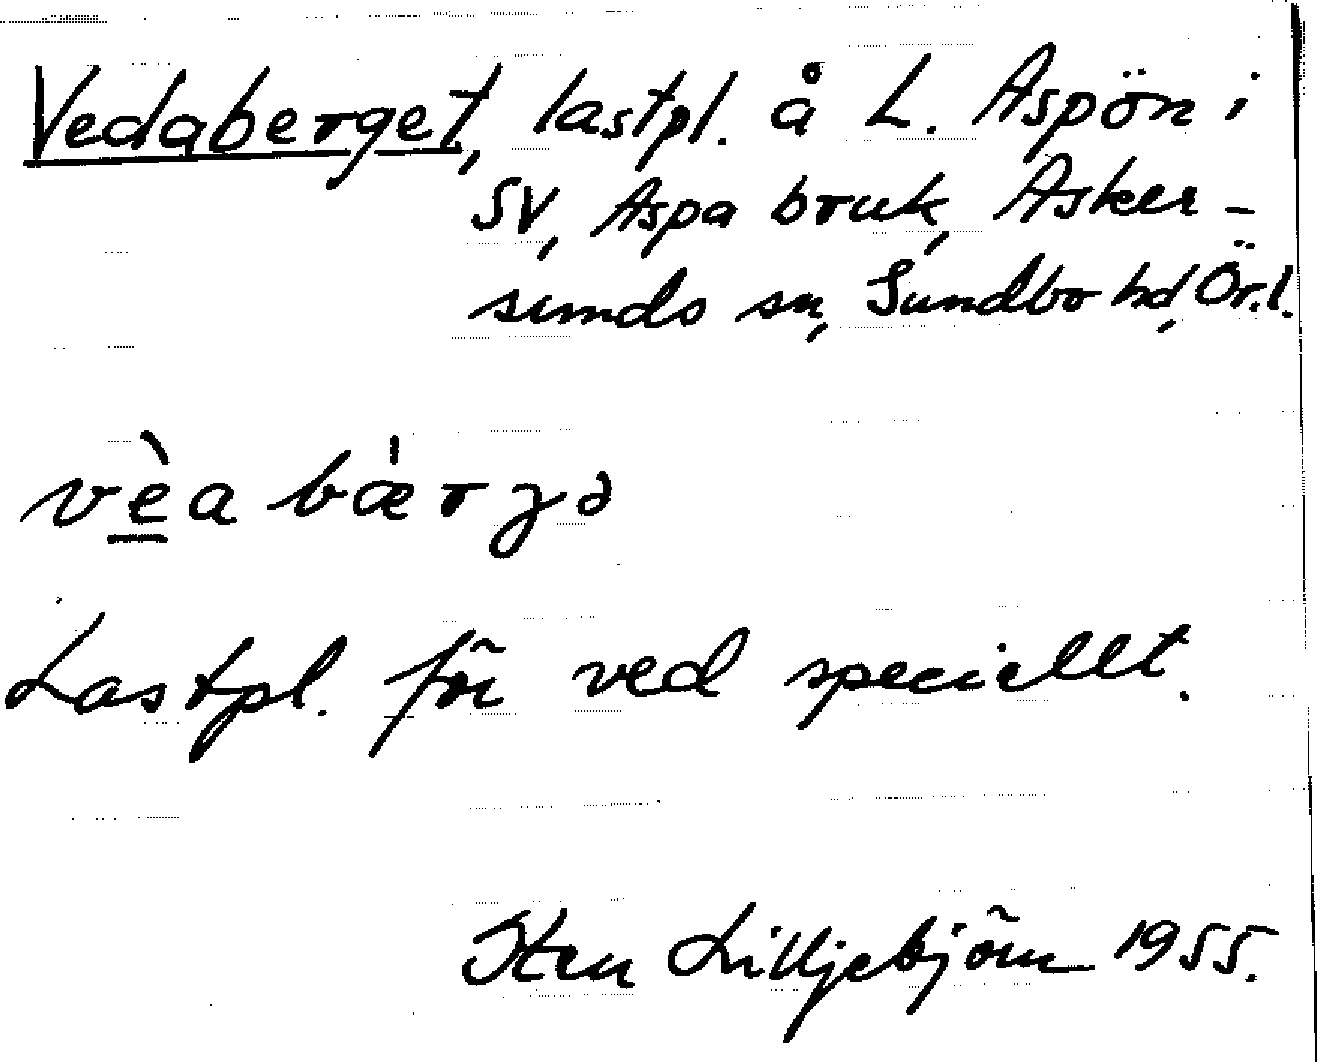 Vedaberget, lastpl. å L. Aspön i
SV, Aspa bruk, Asker-
sunds sn, Sundbo hd, Ör.l.
vèa bærgə
Lastpl. för ved speciellt.
Sten Lilljebjörn 1955.